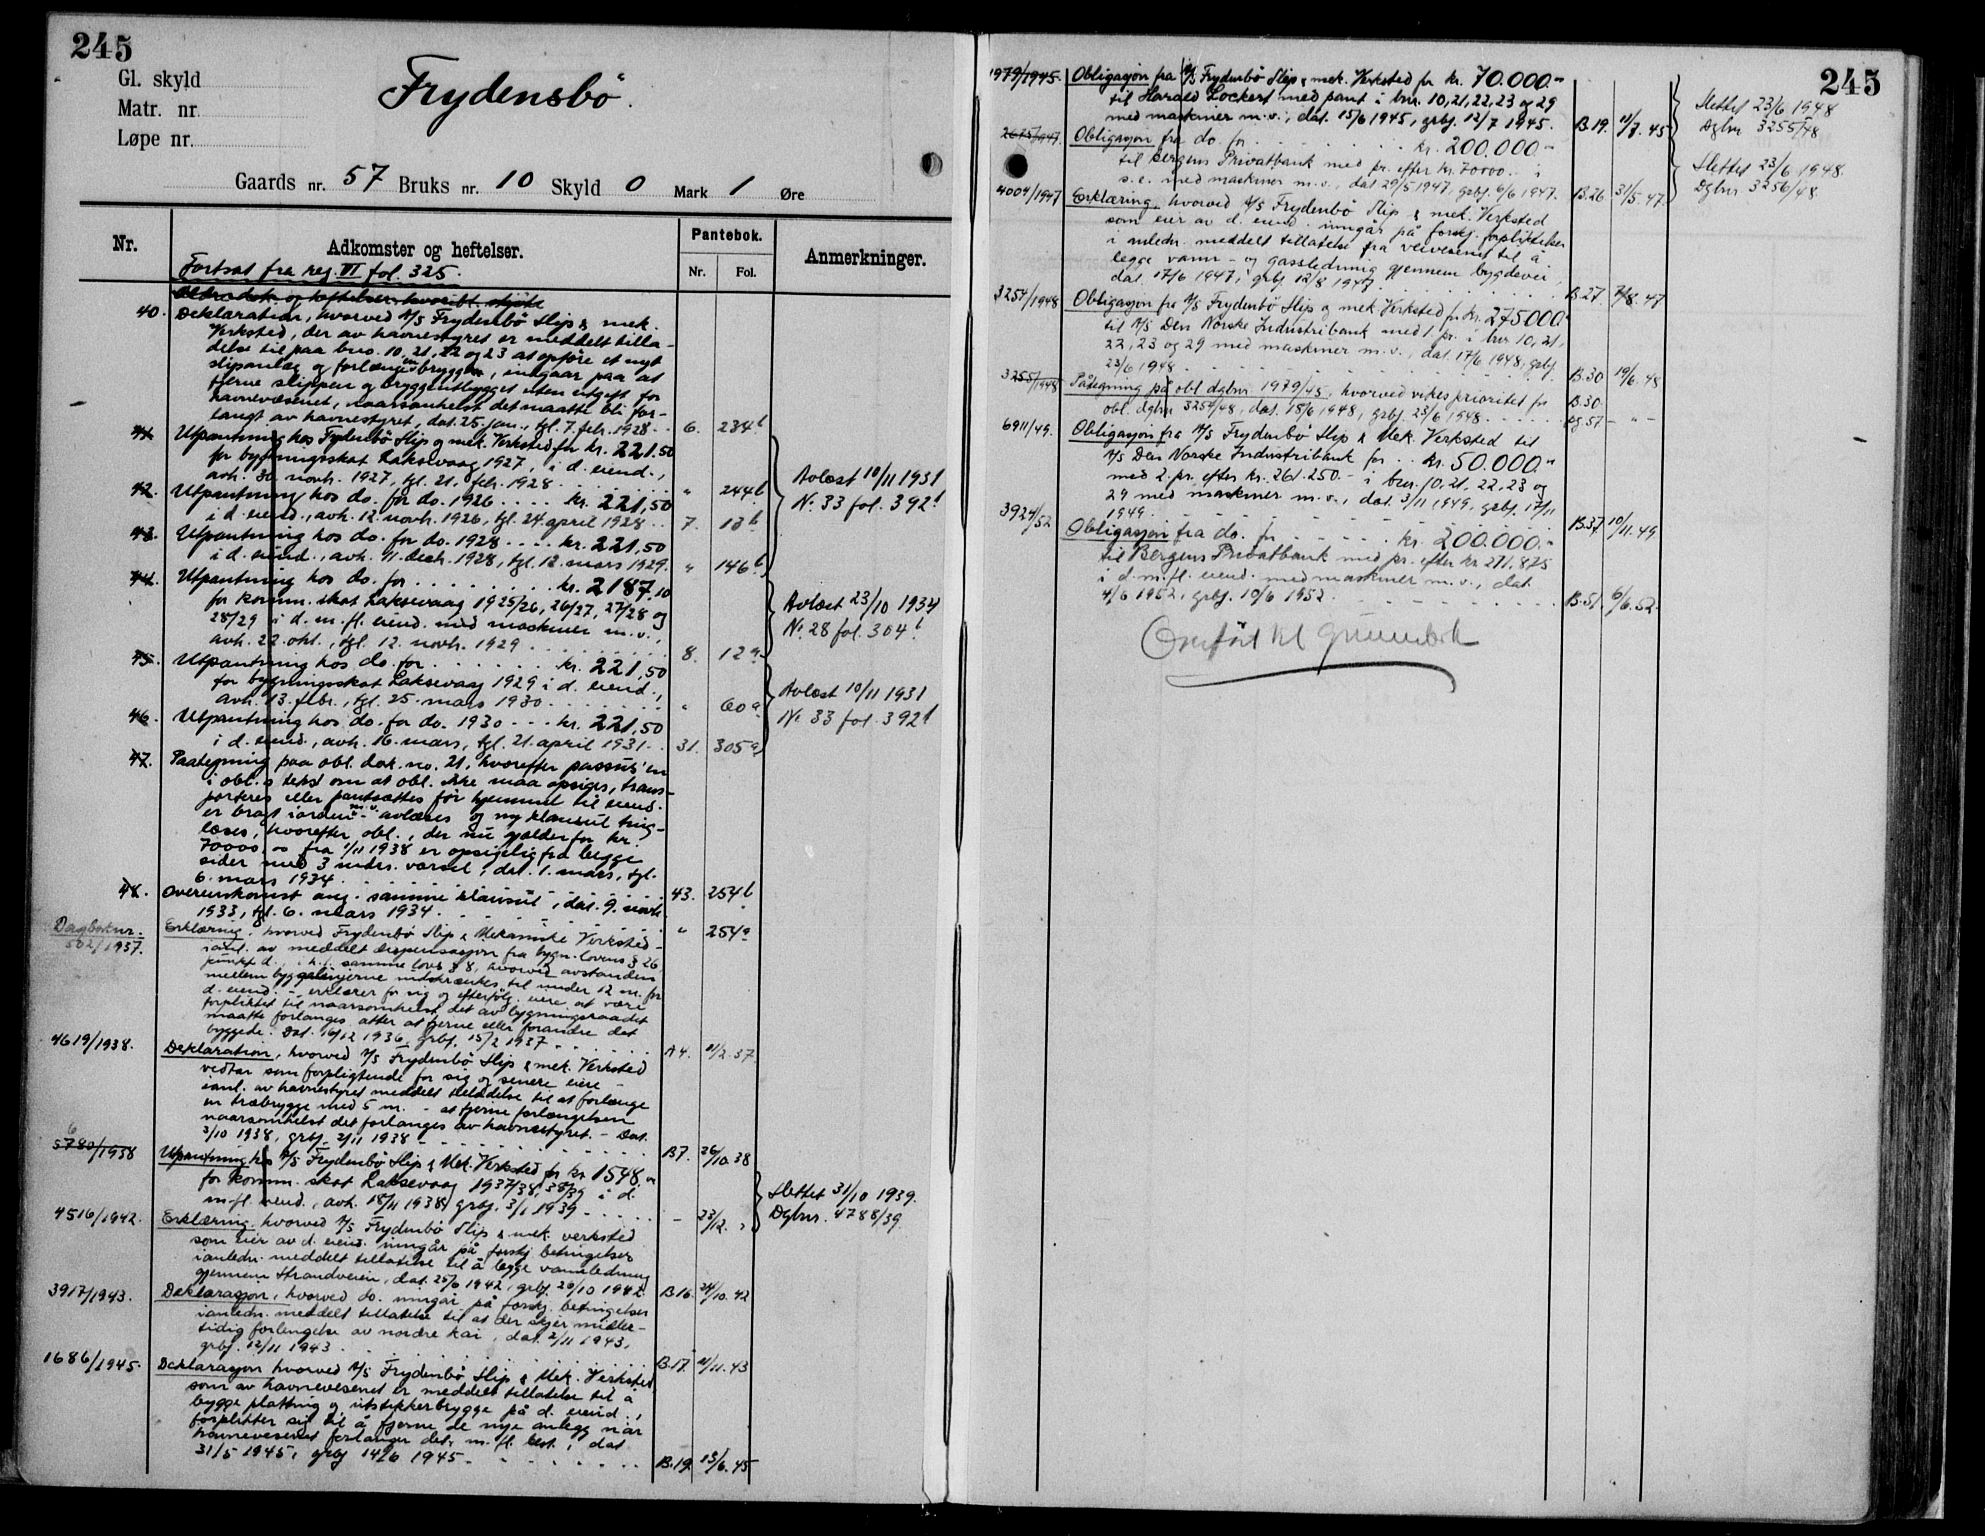 245
Gl. skyld
Matr. nr.
Løpe nr.
Frydensbö.
Gaards nr. 57 Bruks nr. 10 Skyld 0 Mark 1 Øre
Nr.
Adkomster og heftelser.
Pantebok.
Nr. Fol.
Anmerkninger.
Fortsat fra reg. VI fol. 325.
40. Deklaration, hvorved A/S Frydenbö Slip & mek.
Verksted, der av havnestyret er meddelt tilla-
delse til paa brno. 10, 21, 22 og 23 at opföre et nyt
slipanlæg og forlænge en bryggen, indgaar paa at
fjerne slippen og bryggeutbygget uten utgift for
havnevæsenet, naarsomhelst det maatte bli for-
langt av havnestyret, dat. 25. jan., tgl. 7. febr. 1928 6. 234b
41. Utpantning hos Frydenbö Slip og mek. Verksted for kr. 221.50
for bygningsskat Laksevaag 1927, i d. eiend.,
avh. 30. novh. 1927, tgl. 21. febr. 1928 " 244b
42. Utpantning hos do. for do. 1926 kr. 221,50
i d. eiend., avh. 12. novh. 1926, tgl. 24. april 1928 7. 13b
43. Utpantning hos do. for do. 1928 kr. 221,50
i d. eiend., avh. 11. desh. 1928, tgl. 12. mars 1929. " 146b
Avlæst 10/11 1931
N. 33 fol. 392b
44. Utpantning hos do. for kr. 2187.10
for komm. skat Laksevaag 1925/26, 26/27, 27/28 og
28/29 i d. m. fl. eiend. med maskiner m.v.,
avh. 22. okt., tgl. 12. novh. 1929 8. 12a
Avlæst 23/10 1934
N. 28 fol. 304b
45. Utpantning hos do. for kr. 221,50
for bygningsskat Laksevaag 1929 i d. eiend.,
avh. 13. febr., tgl. 25. mars 1930 " 60a
46. Utpantning hos do. for do. 1930 kr. 221,50
i d. eiend., avh. 16. mars, tgl. 21. april 1931 31. 305a
Avlæst 10/11 1931
N. 33 fol. 392b
47. Paategning paa obl. dok. no. 21, hvorefter passus'en
i obl.s tekst om at obl. ikke maa opsiges, trans-
porteres eller pantsættes för hjemmel til eiend.
er bragt i orden m.v. avlæses og ny klausul ting-
læses, hvorefter obl., der nu gjelder for kr.
70000.00 fra 1/11 1938 er opsigelig fra begge
sider med 3 mdrs. varsel, dat. 1. mars, tgl.
6. mars 1934 43. 254b
48. Overenskomst ang. samme klausul, dat. 9. novh.
1933, tgl. 6. mars 1934. " 254a
Dagboknr.
502/1937. Erklæring, hvorved Frydenbö Slip & Mekaniske Verksted -
ianl. av meddelt dispensasjon fra bygn. lovens § 26,
punkt d., i h.t. samme lovs § 8, hvorved avstanden
mellem byggelinjerne indskrænkes til under 12 m. for
d. eiend. - erklærer for sig og efterfölg. eiere at være
forpliktet til naarsomhelst det av bygningsraadet
maatte forlanges atter at fjerne eller forandre det
byggede. Dat. 16/12 1936, grbf. 15/2 1937 A 4. 11/2.37
4619/1938. Deklaration, hvorved A/S Frydenbö Slip & mek. Verksted
vedtar som forpligtende for sig og senere eiere -
ianl. av havnestyret meddelt tilladelse til at forlænge
en træbrygge med 5 m. - at fjerne forlængelsen
naarsomhelst det forlanges av havnestyret. - Dat.
3/10 1938, grbf. 2/11 1938 B 7. 26/10.38
5780/1938 Utpantning hos A/S Frydenbö Slip & Mek. Verksted for kr 1548.
for komm. skat Laksevaag 1937/38, 38/39 i d.
m. fl. eiend., avh. 18/11 1938, grbf. 3/1 1939 - 23/12. "
Slettet 31/10 1939.
Dgbnr. 4788/39.
4516/1942. Erklæring, hvorved A/S Frydenbö Slip & mek. verksted
som eier av d. eiend. inngår på forskj. betingelser
ianledn. meddelt tillatelse til å legge vannledning
gjennem Strandveien, dat. 25/6 1942, grbf. 26/10 1942 B.16. 24/10.42
3917/1943. Deklarasjon, hvorved do. inngår på forskj. betingelser
ianledn. meddelt tillatelse til at der skjer midler-
tidig forlengelse av nordre kai, dat. 2/11 1943,
grbf. 12/11 1943 B.17. 11/11.43
1686/1945. Deklarasjon hvorved A/S Frydenbö Slip & Mek. Verksted
som av havnevesenet er meddelt tillatelse til å
bygge plattning og utstikkerbrygge på d. eiend.,
forplikter sig til å fjerne de nye anlegg når
havnevesenet forlanger det, m. fl. best., dat.
31/5 1945, grbf 14/6 1945 B.19. 13/6.45
245
1979/1945. Obligasjon fra A/S Frydenbö Slip & mek. Verksted for kr. 70.000.-
til Harald Lockert med pant i bnr. 10, 21, 22, 23 og 29
med maskiner m.v., dat. 15/6 1945, grbf. 12/7 1945. B.19. 11/7.45
Slettet 23/6 1948
Dgbnr 3255/48
2675/1947. Obligasjon fra do. for kr. 200.000.-
til Bergens Privatbank med pr. efter kr. 70000.- i
s. e. med maskiner m.v., dat. 29/5 1947, grbf. 6/6 1947. B.26 31/5.47.
Slettet 23/6 1948.
Dgbnr 3256/48.
4004/1947 Erklæring, hvorved A/S Frydenbö Slip & mek. Verksted
som eier av d. eiend. inngår på forskj. forpliktelser
i anledn. meddelt tillatelse fra veivesenet til å
legge vann- og gassledning gjennem bygdevei,
dat. 17/6 1947, grbf 12/8 1947 B.27. 7/8.47
3254/1948 Obligasjon fra A/S Frydenbö Slip og mek Verksted for kr. 275000.-
til A/S Den Norske Industribank med 1 pr. i bnr 10, 21,
22, 23 og 29 med maskiner m.v., dat. 17/6 1948, grbf.
23/6 1948 B.30 19/6.48
3255/1948 Påtegning på obl dgbnr. 1979/45, hvorved vikes prioritet for
obl. dgbnr 3254/48, dat. 18/6 1948, grbf. 23/6 1948 B.30 og 57 - " -
6911/49. Obligasjon fra A/S Frydenbö Slip & Mek. Verksted til
A/S Den Norske Industribank for kr. 50.000.-
med 2. pr. efter kr. 261.250.- i bnr. 10, 21, 22, 23 og
29 med maskiner m.v., dat. 3/11 1949, grbf. 17/11
1949. B.37 10/11.49
3924/52 Obligasjon fra do. for kr. 200.000.-
til Bergens Privatbank med pr. efter kr 271,875
i d. m. fl. eiend. med maskiner m.v., dat.
4/6 1952, grbf. 10/6 1952. B.51. 6/6.52.
Overfört til grunnbok